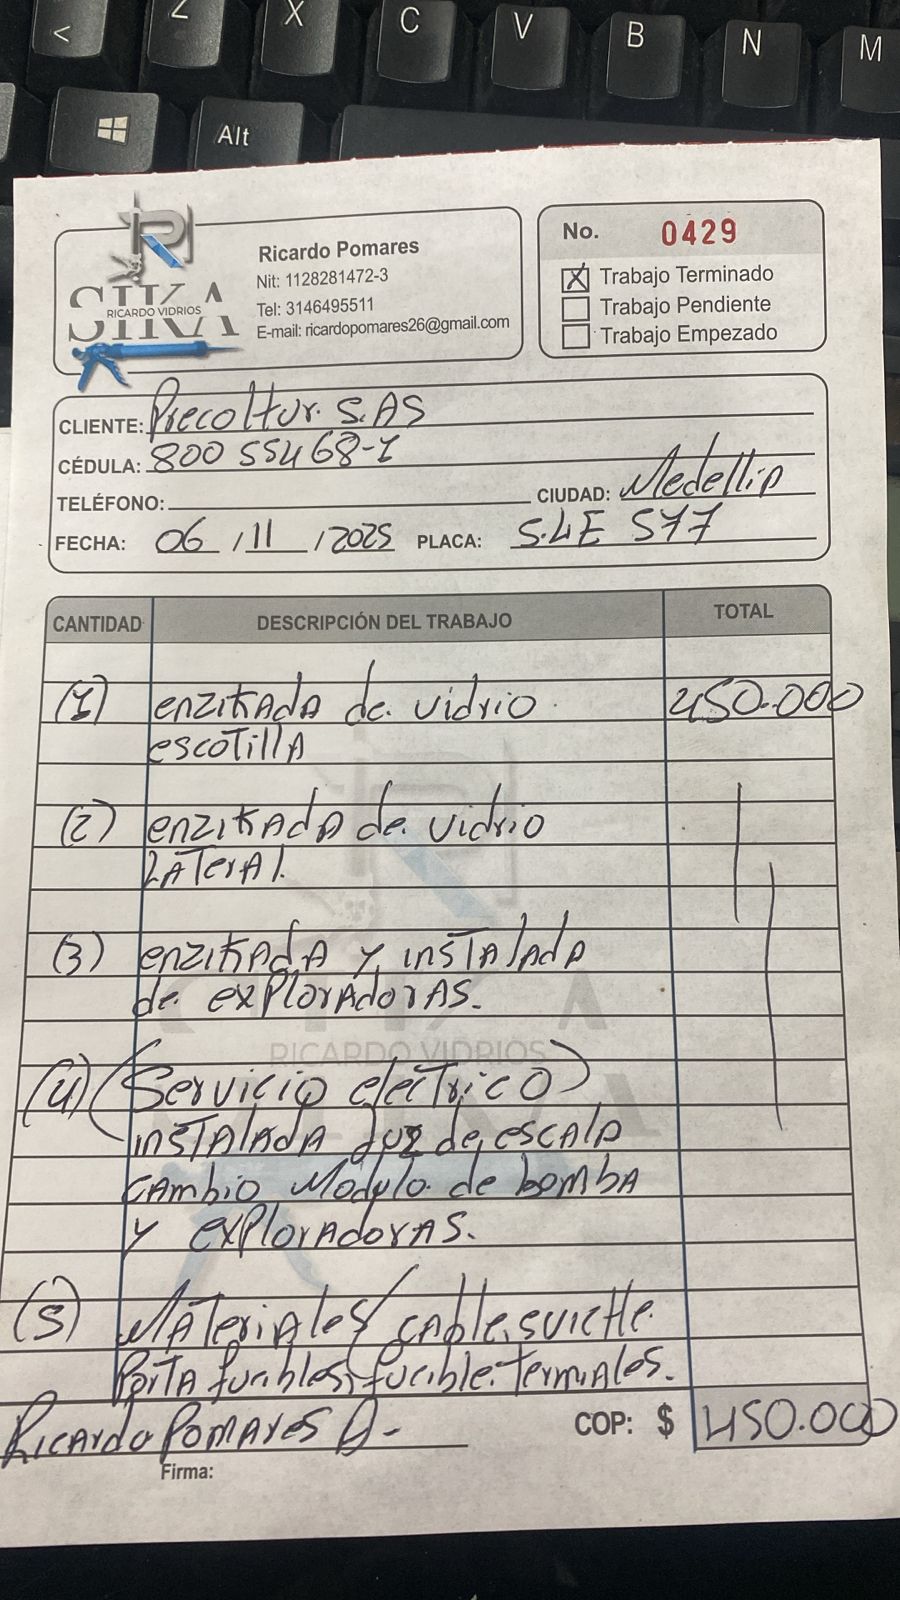 <
Z
X
C
V
B
N
M
Alt
Ricardo Pomares
Nit: 1128281472-3
Tel: 3146495511
E-mail: ricardopomares26@gmail.com
SIKA
RICARDO VIDRIOS
No. 0429
X Trabajo Terminado
Trabajo Pendiente
Trabajo Empezado
CLIENTE: Precoltur. S.AS
CÉDULA: 800 554 68-1
TELÉFONO:
CIUDAD: Medellin
FECHA: 06 / 11 / 2025 PLACA:
CANTIDAD DESCRIPCIÓN DEL TRABAJO TOTAL
(1) enzikada de vidrio 450.000
escotilla
(2) enzikada de vidrio
Lateral.
(3) enzikada y instalada
de exploradoras.
RICARDO VIDRIOS
(4) (Servicio electrico)
instalada de escala
cambio Modulo de bomba
y exploradoras.
(5) Materiales/cable, suiche
Porta fucibles, fucible. termiales.
Ricardo Pomares
COP: $ 450.000
Firma: